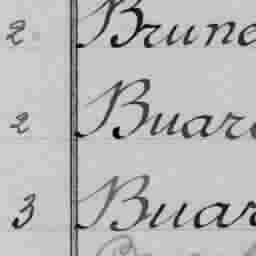 2 Brune
2 Buar
3 Buar